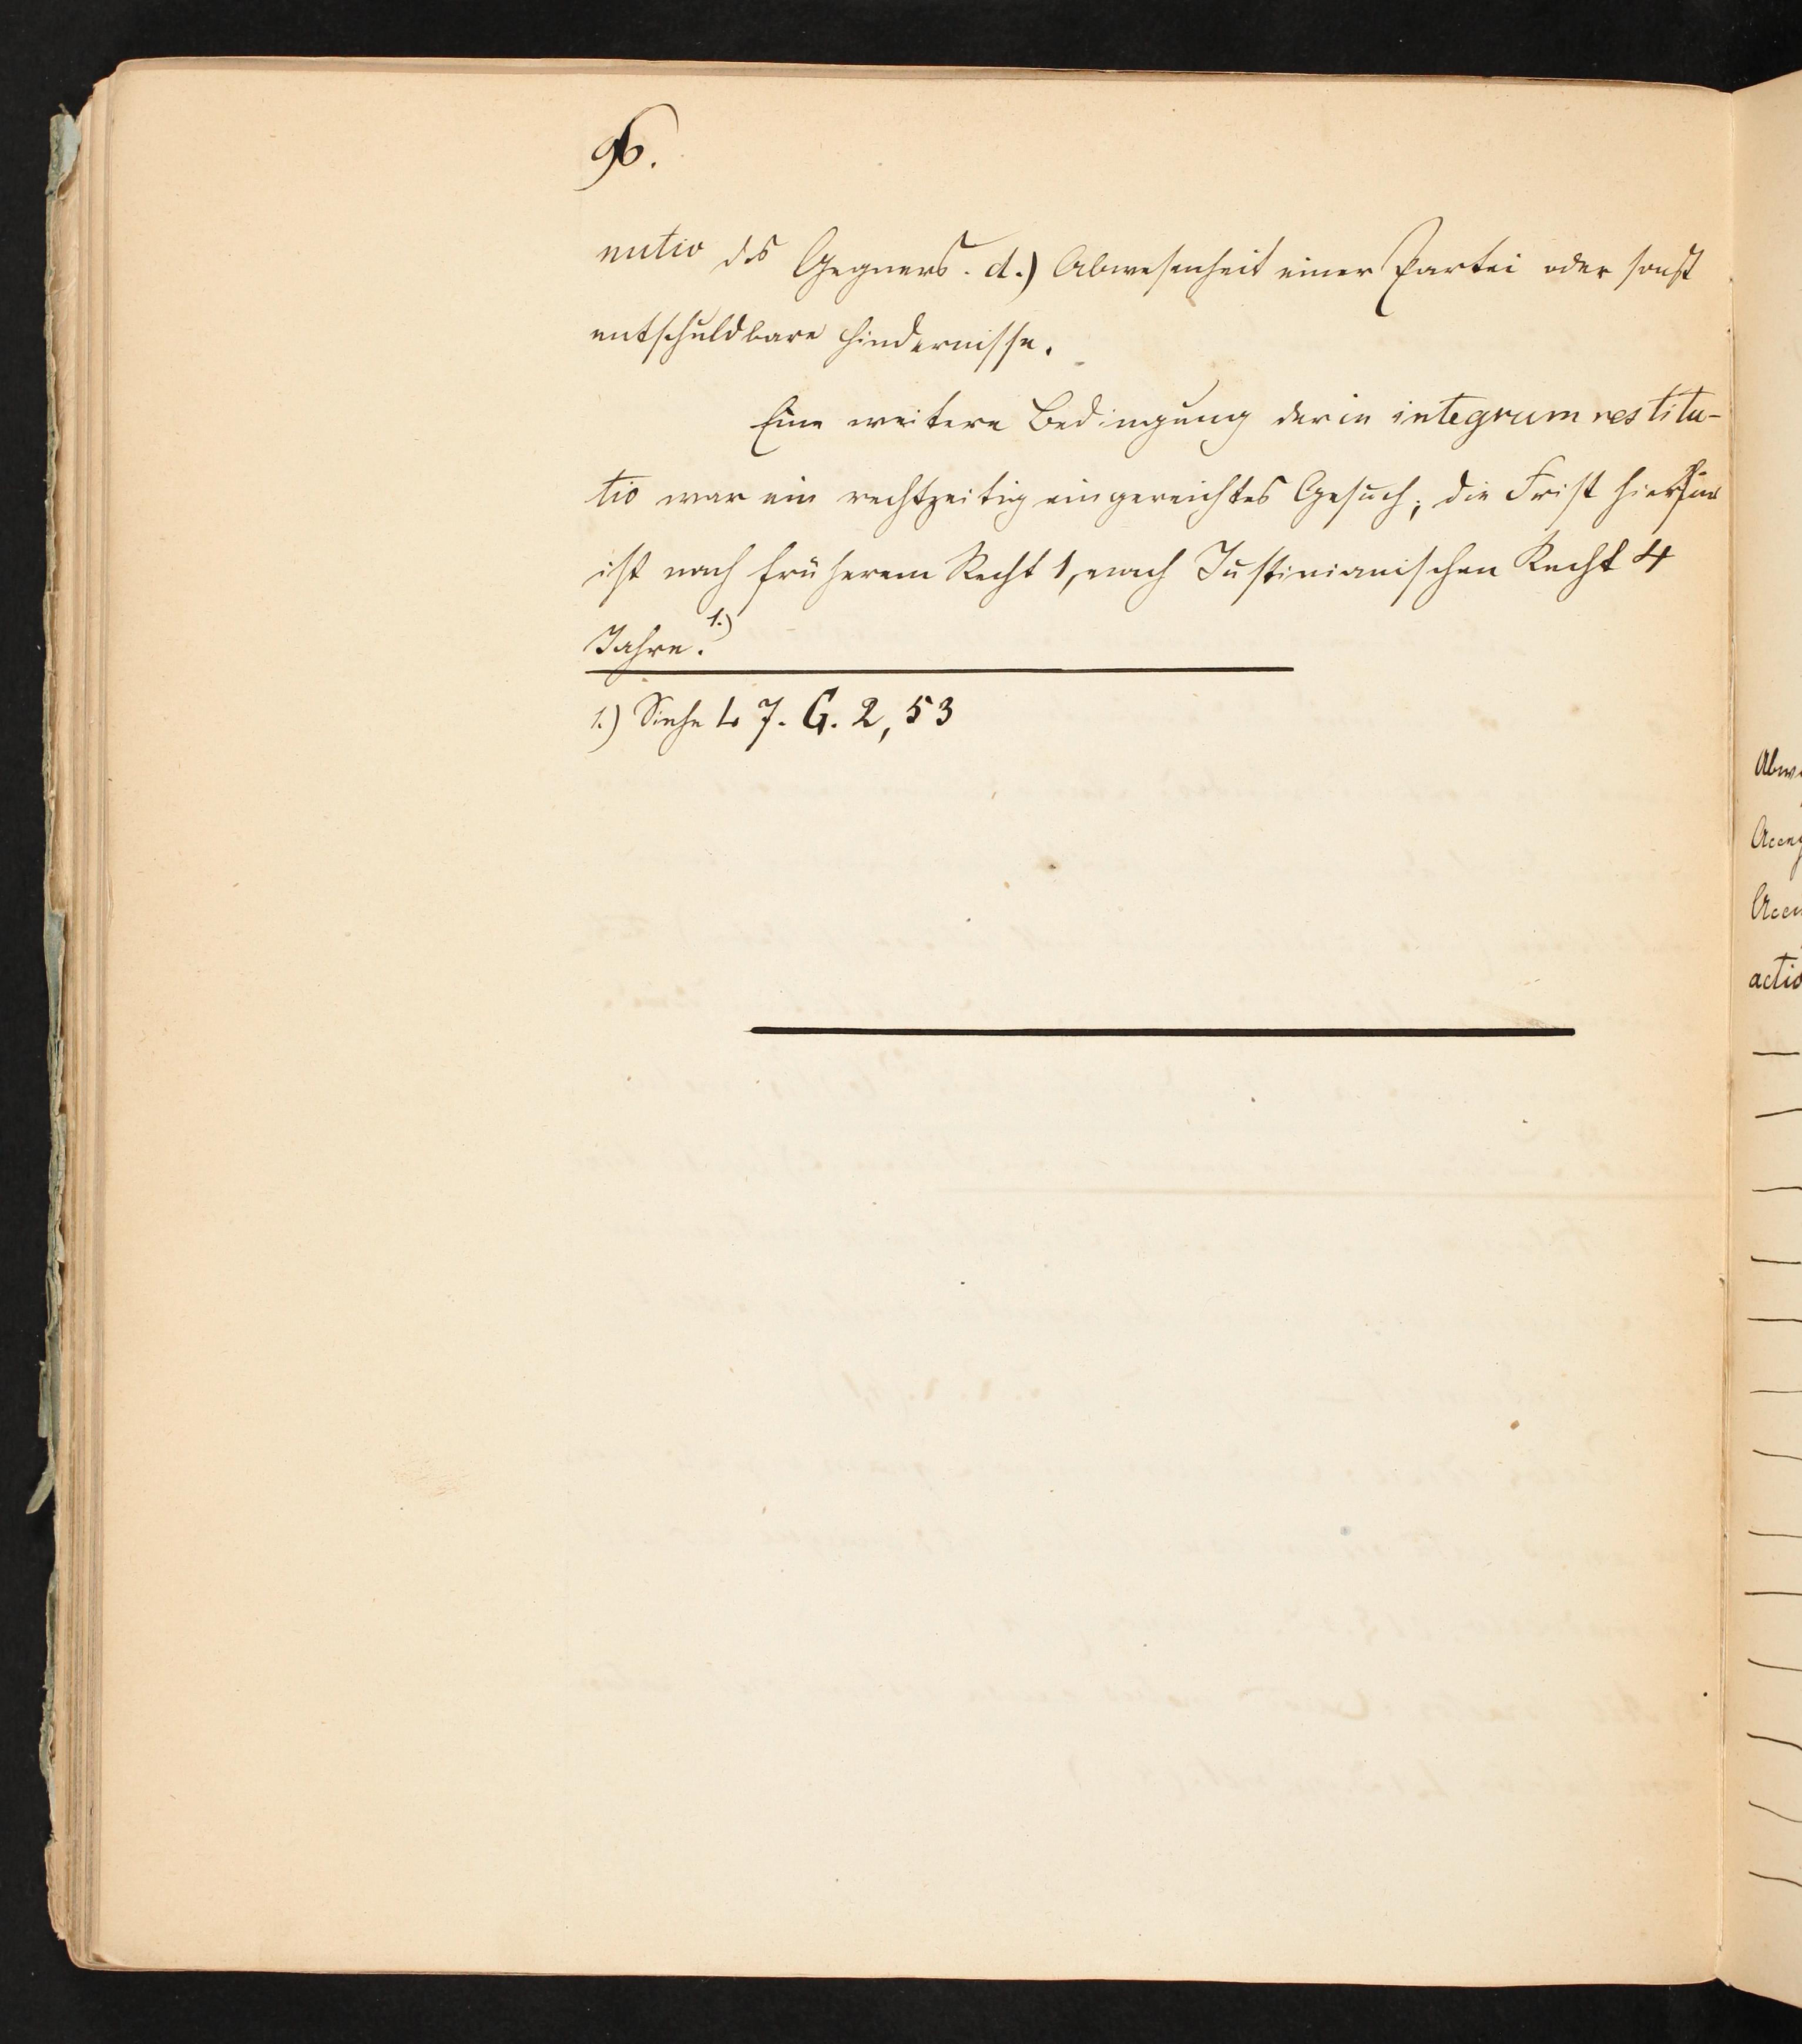 96.
nutio des Gegners. d.) Abwesenheit einer Partei oder sonst
entschuldbare Hindernisse.
Eine weitere Bedingung der in integrum restitu-
tio war ein rechtzeitig eingereichtes Gesuch; die Frist hierfür
ist nach früherem Recht 1, nach Justinianischen Recht 4
Jahre. 1.)
1.) Siehe l. 7. C. 2, 53
Abw
Accep
Accu
actio